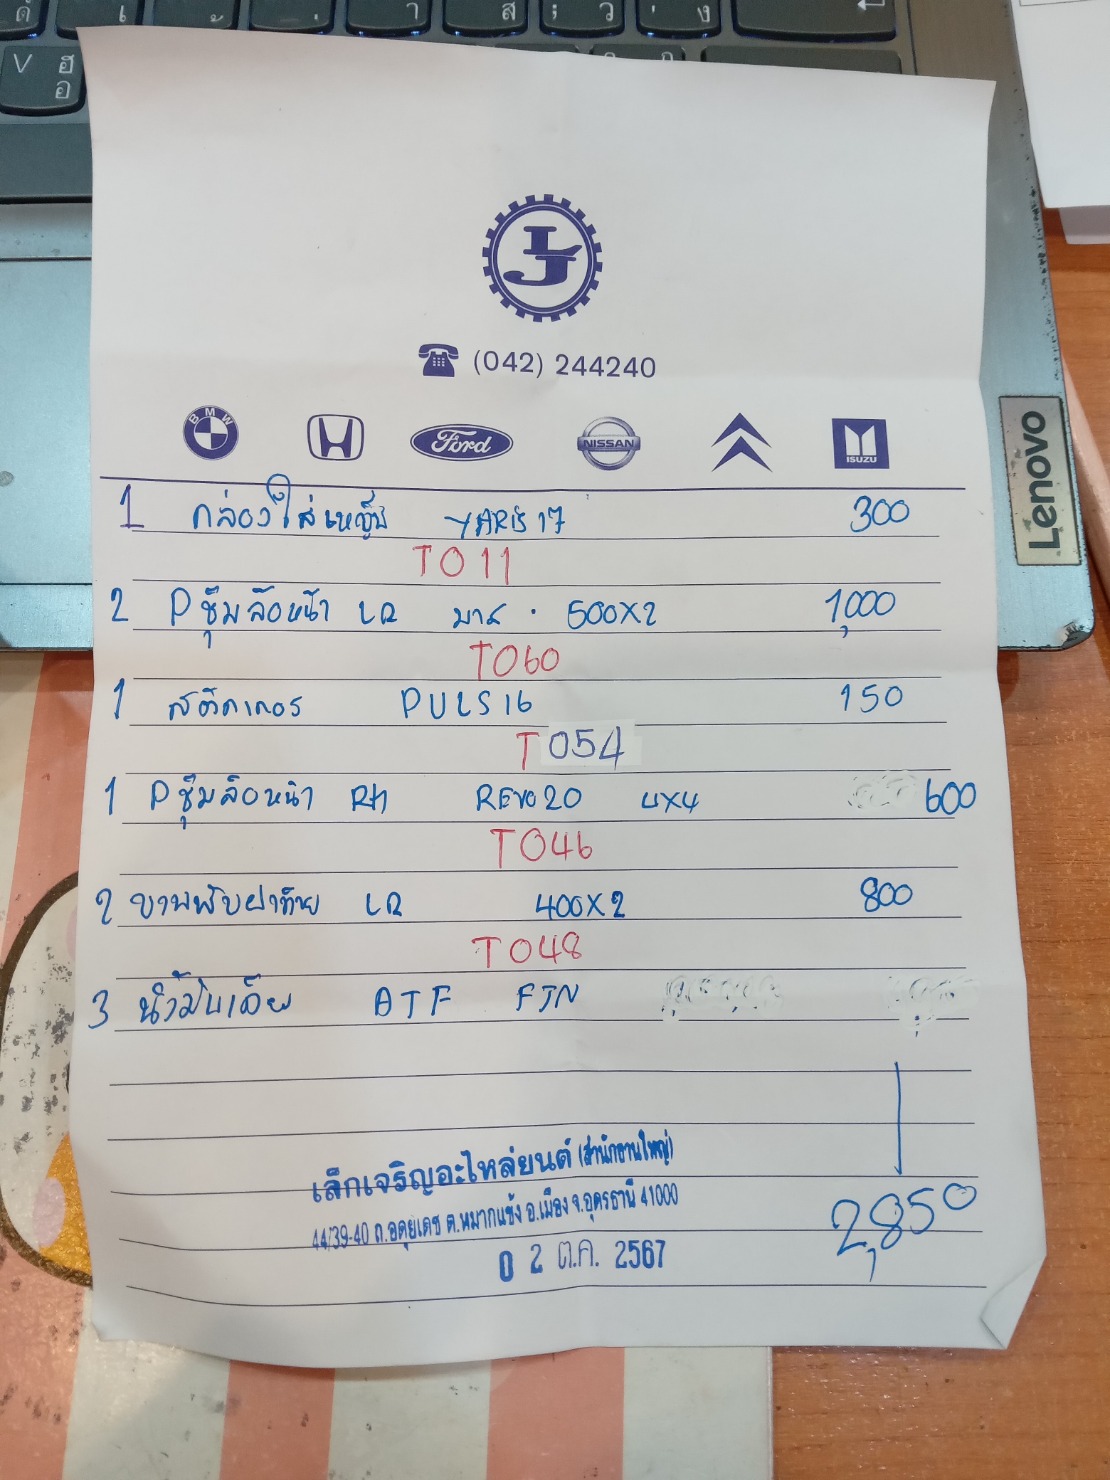 (042) 244240
BMW Ford NISSAN ISUZU
1 กล่องใส่เหรียญ YARIS 17 300
TO11
2 P ซุ้มล้อหน้า LR 500X2 1,000
TO60
1 สติกเกอร์ PULS 16 150
T054
1 P ซุ้มล้อหน้า RH REVO 20 4X4 600
TO46
2 ขาพับฝาท้าย LR 400X2 800
TO48
3 น้ำมันเกียร์ ATF FJN
2,850
เล็กเจริญอะไหล่ยนต์ (สำนักงานใหญ่)
44/39-40 ถ.อดุยเดช ต.หมากแข้ง อ.เมือง จ.อุดรธานี 41000
0 2 ต.ค. 2567
Lenovo